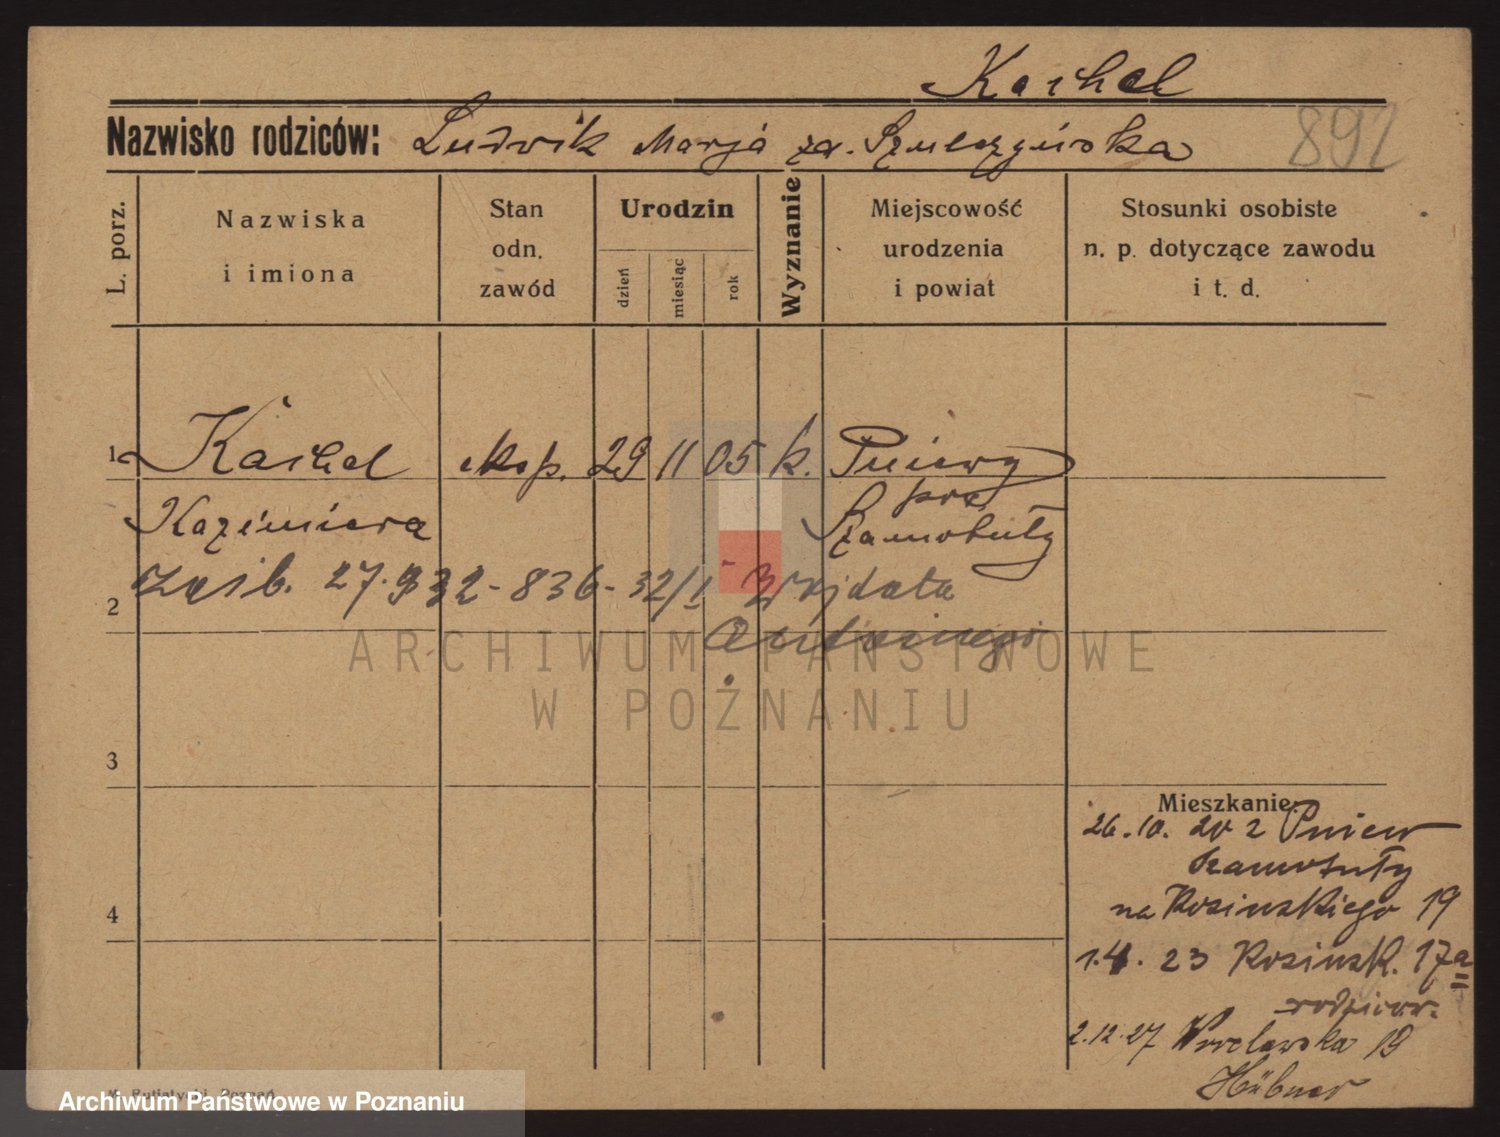 Kachel
Nazwisko rodziców: Ludwik Marja za. Szulczyńska
892
L. porz.
Nazwiska
i imiona
Stan
odn.
zawód
Urodzin
dzień
miesiąc
rok
Wyznanie
Miejscowość
urodzenia
i powiat
Stosunki osobiste
n. p. dotyczące zawodu
i t. d.
1 Kachel eksp. 29 11 05 k. Pniewy
pow.
Kazimiera Szamotuły
zaśb. 27.9 32 - 836 - 32/I Wojdała
2
Antoniego
3
4
Mieszkanie.
26.10. 20 z Pniew
Szamotuły
na Kosinskiego 19
1.4. 23 Kosinsk. 17a
rodzicow.
2.12.27 Wroclawska 19
Hübner
ARCHIWUM PAŃSTWOWE
W POZNANIU
K. Putiatycki, Poznań
Archiwum Państwowe w Poznaniu